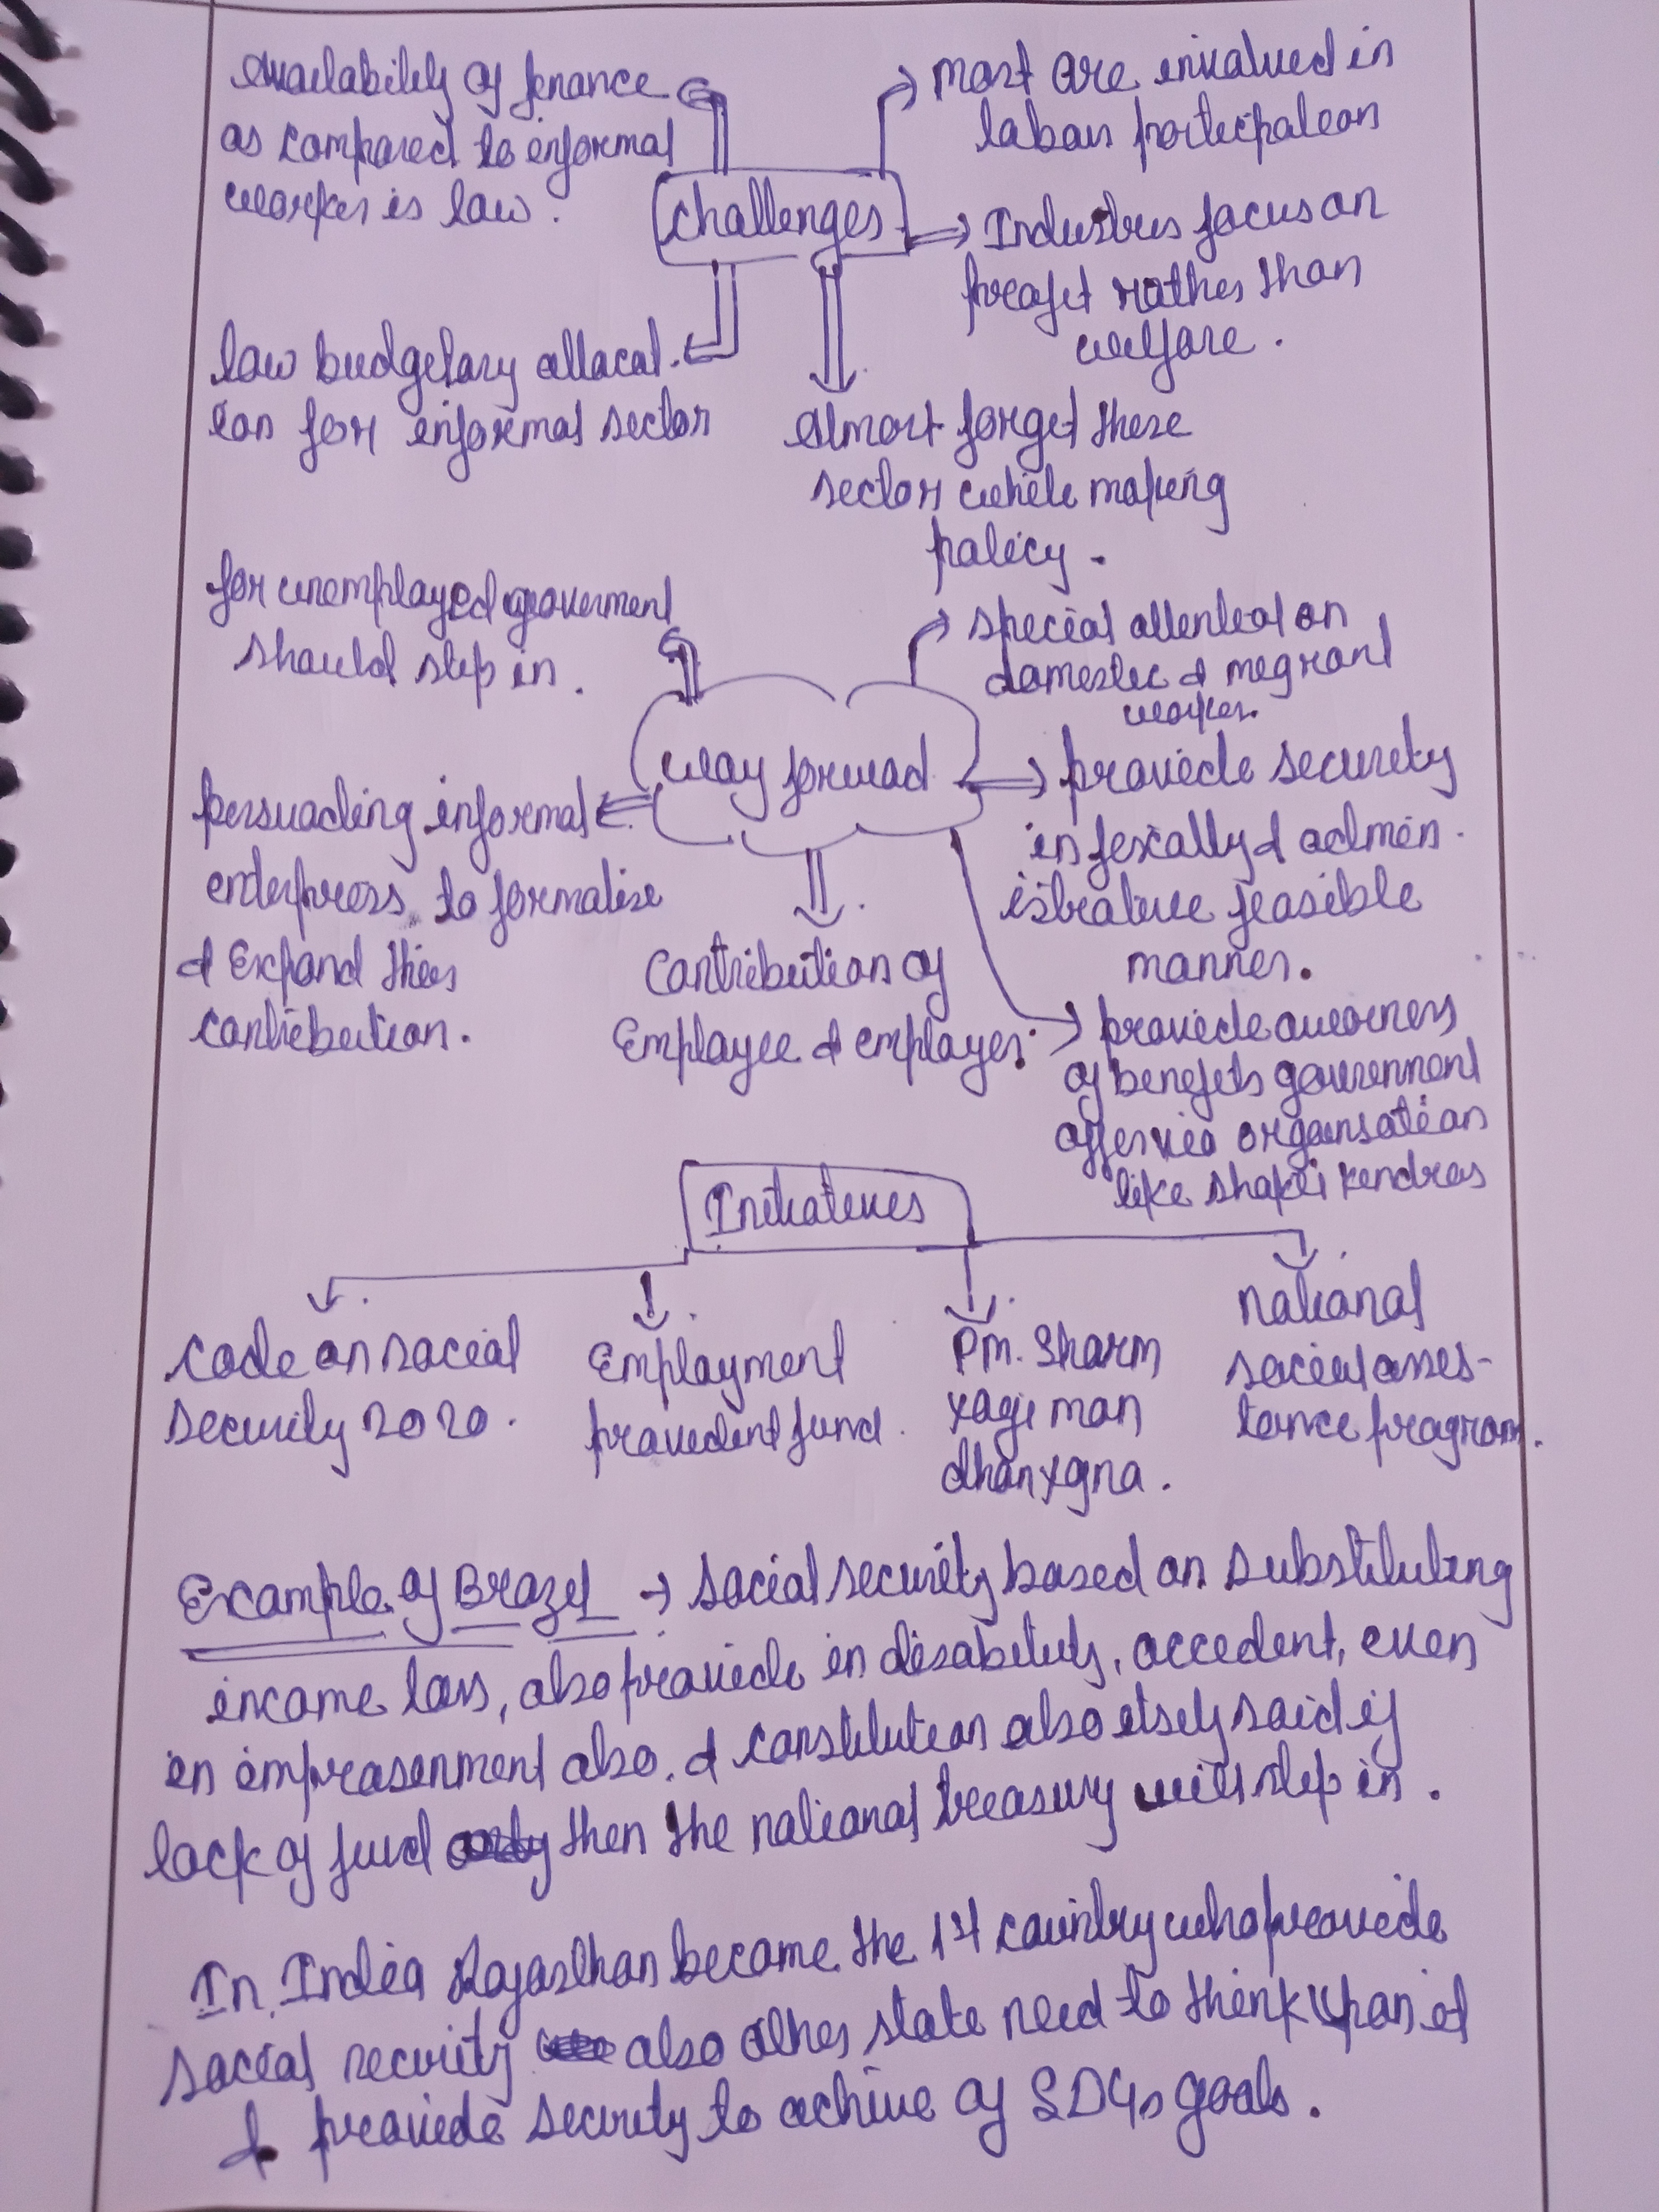 Availability of finance
as compared to informal
worker is low.
Challenges
most are involved in
labour participation
Industries focus on
profit rather than
welfare.
low budgetary allocat-
ion for informal sector
almost forget these
sector while making
policy.
for unemployed government
should step in.
way forwad
special attention on
domestic & migrant
worker.
provide security
in fiscally & admin-
istrative feasible
manner.
persuading informal
to formalise
& Expand their
contribution.
Contribution of
Employee & employer.
provide awarness
of benefits government
offer via organisation
like shakti kendras
Initiatives
Code on social
security 2020.
Employment
provident fund.
Pm. Sharm
yogi man
dhan
national
social assis-
tance program.
Example of Brazil → social security based on substituting
income loss, also provide in disability, accident, even
in imprasonment also. & constitution also itself said if
lack of fund then the national treasury will step in.
In India Rajasthan became the 1st country who provide
social security also other state need to think upon it
& provide security to achive of SDGs goals.